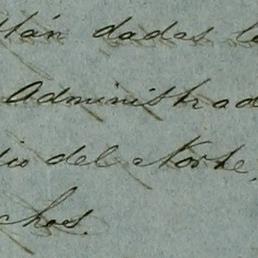 stán dadas la
Administrad
dio del Norte,
chos.